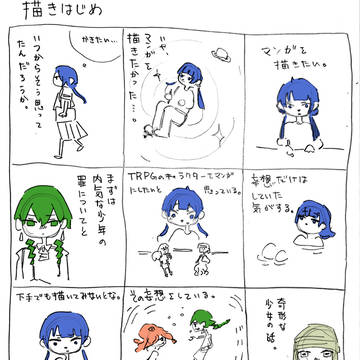 描きはじめ
マンガを
描きたい。
いや、
マンガを
描きたかった…。
かきたい…
いつからそう思って
たんだろうか。
妄想だけは
していた
気がする。
TRPGのキャラクターでマンガ
にしたいと 思っている。
まずは
内気な少年の
罪についてと
奇形な
少女の話。
その妄想をしている。
下手でも描いてみないとな。